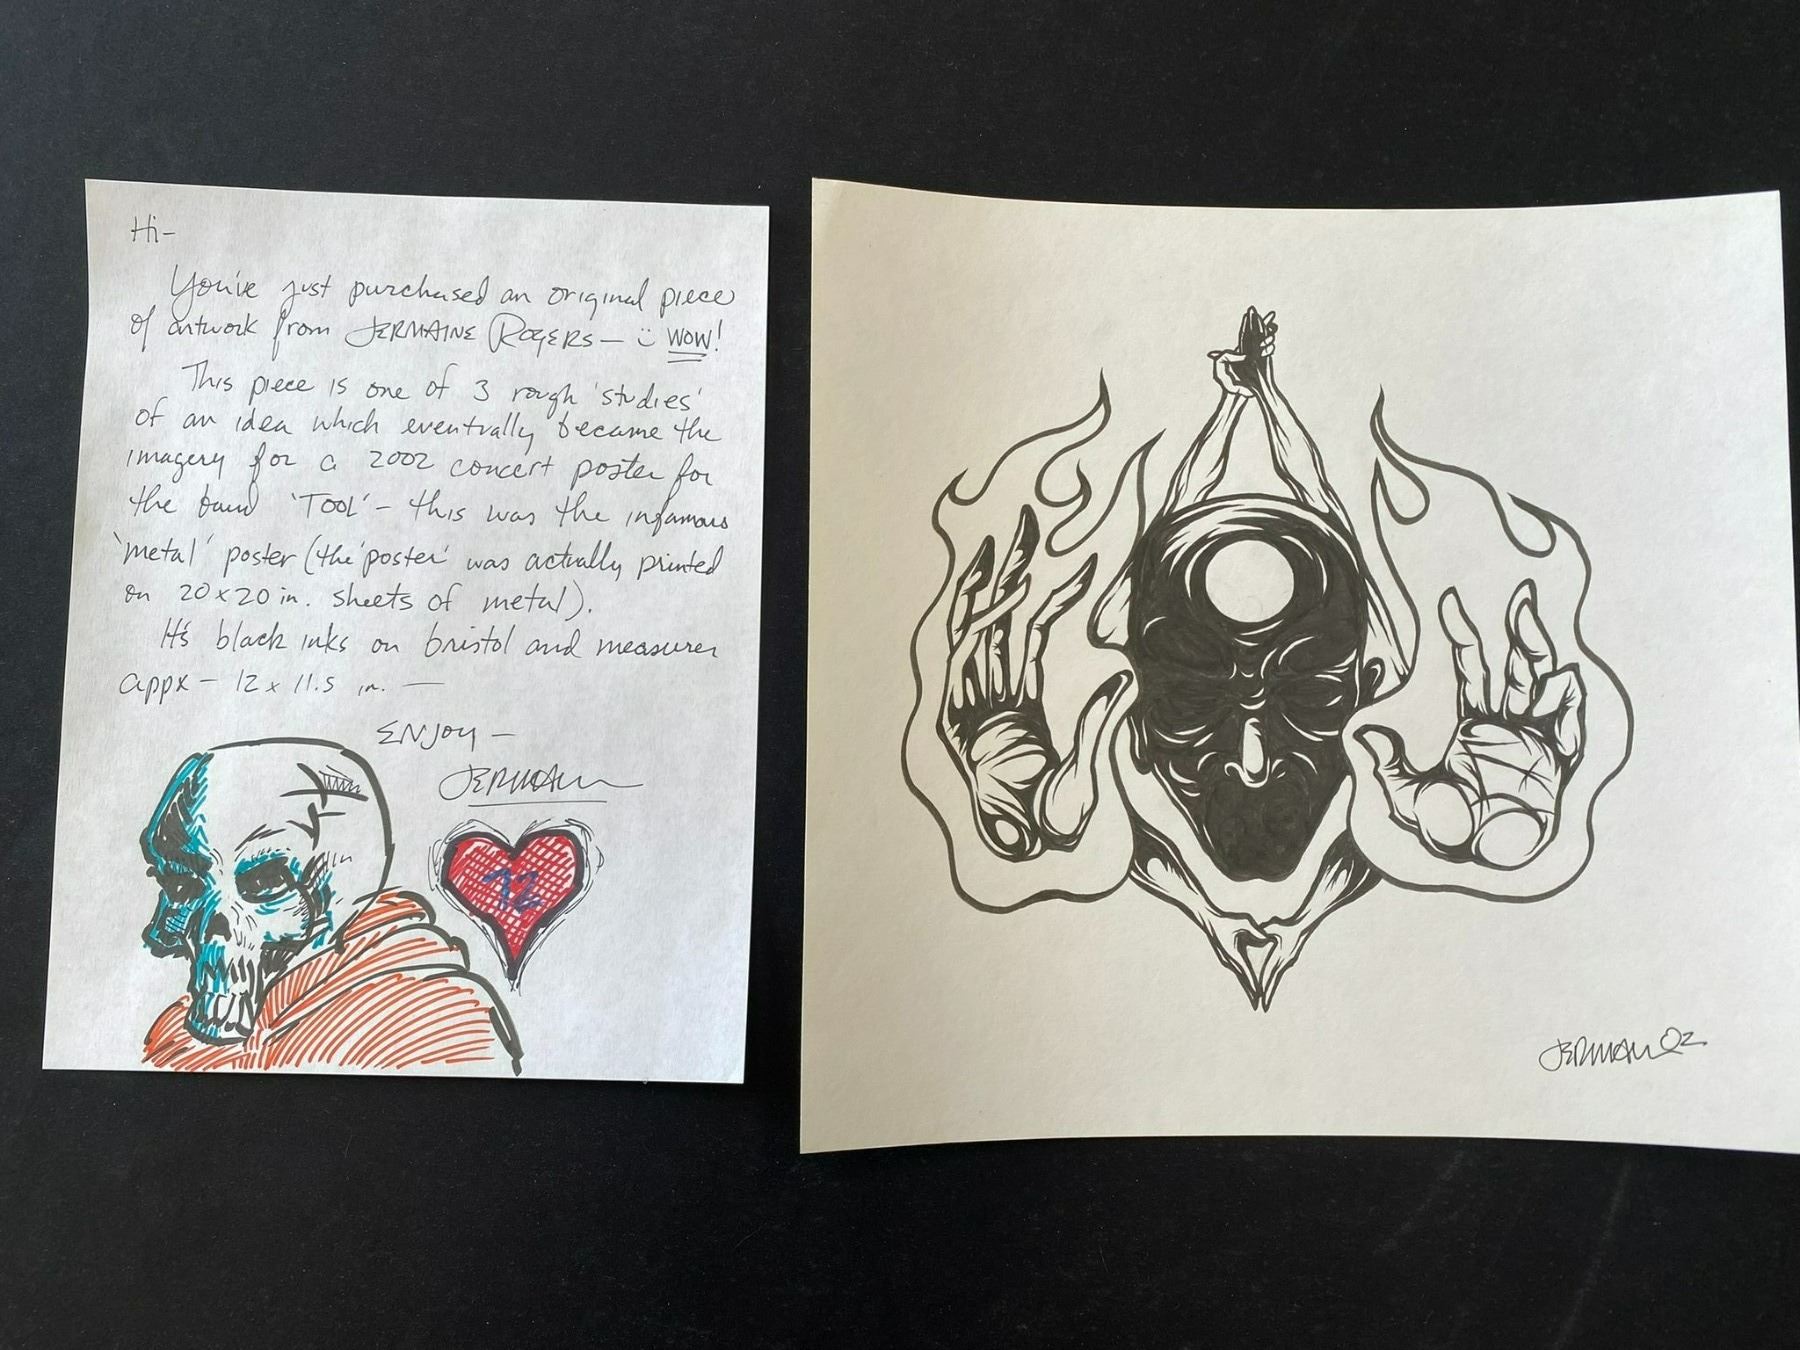 Hi-
You've just purchased an original piece
of artwork from JERMAINE ROGERS — WOW!
This piece is one of 3 rough 'studies'
of an idea which eventually became the
imagery for a 2002 concert poster for
the band 'TOOL' - this was the infamous
'metal' poster (the 'poster' was actually printed
on 20x20 in. sheets of metal).
It's black inks on bristol and measures
appx - 12 x 11.5 in. —
ENJOY —
JERMAINE
12
JERMAINE 02